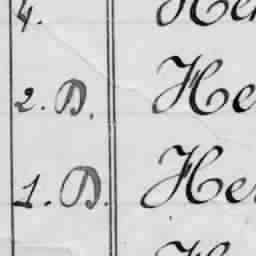 4.
2. D. He
1. D. He